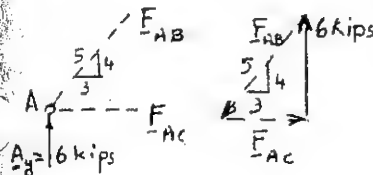 F AB
5 4
3
A
F AC
A y = 6 kips
F AB
6 kips
5 4
3
F AC